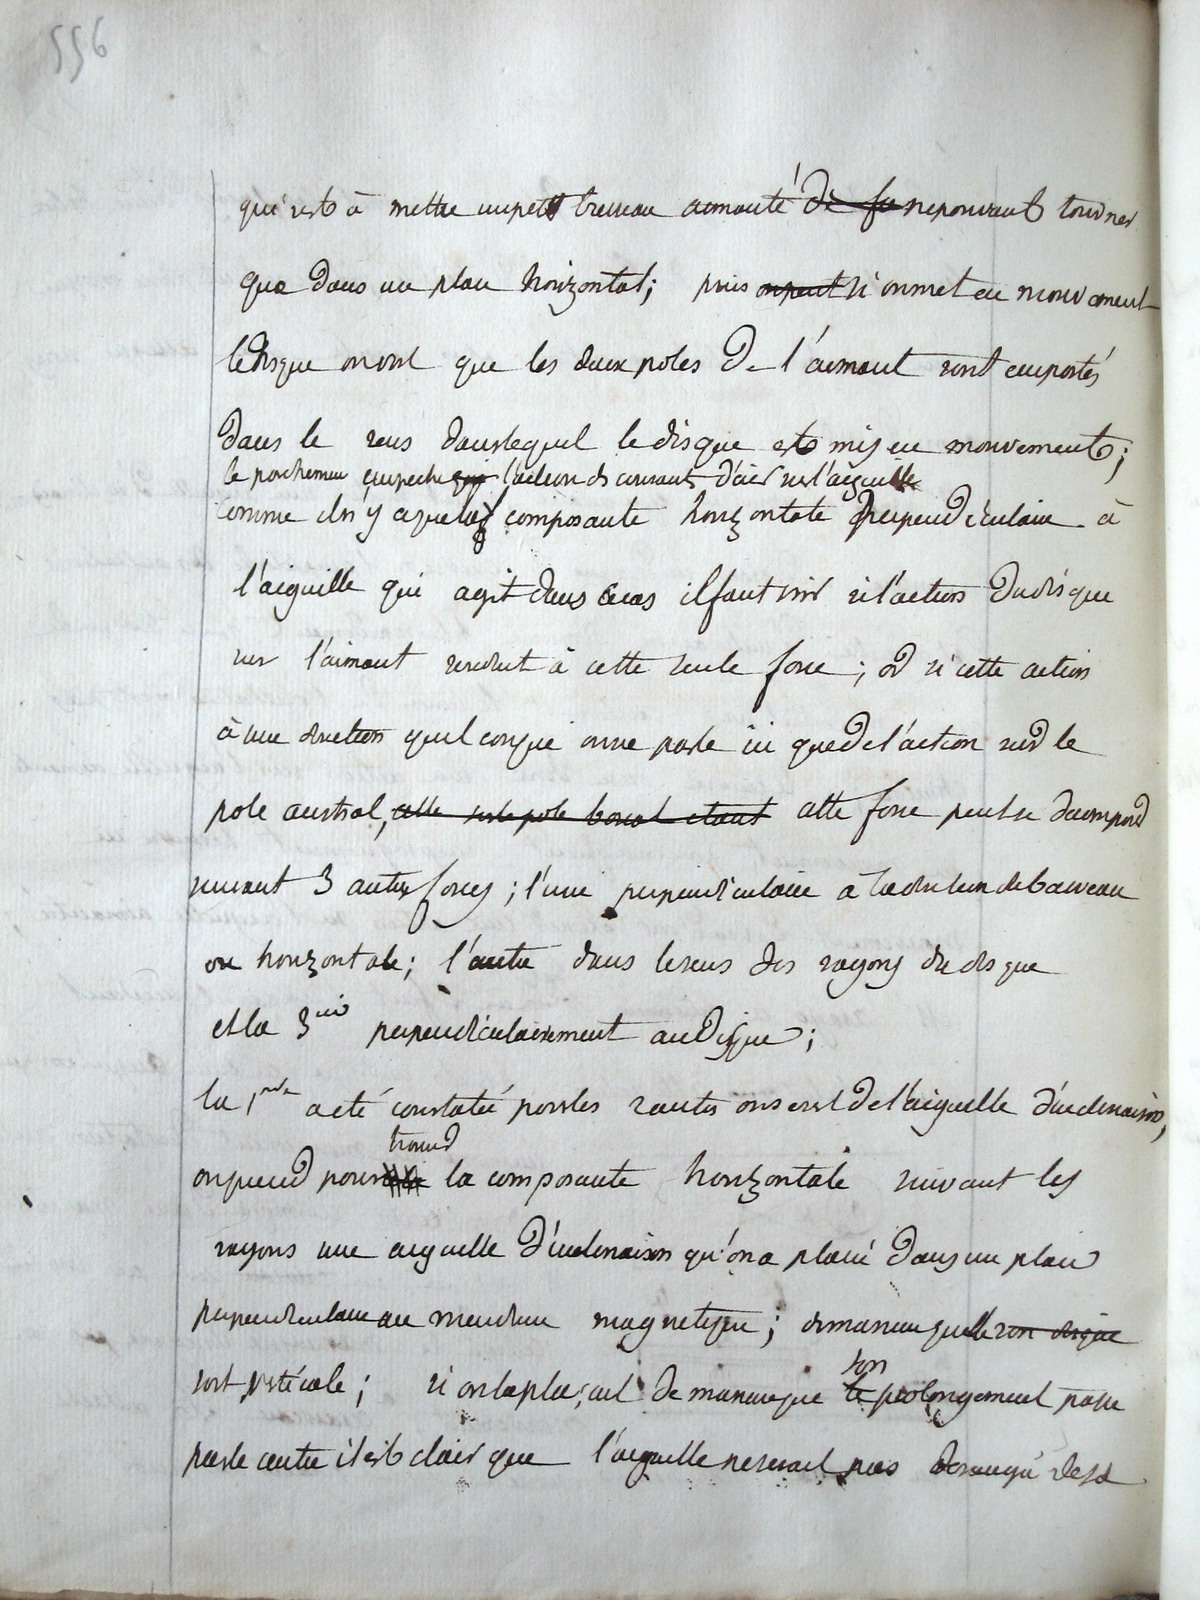 556
qui est à mettre un petit barreau aimanté de fa ne pouvant tourner
que dans un plan horizontal; puis on peut si on met en mouvement
le disque on voit que les deux poles de l'aimant sont emportés
dans le sens dans lequel le disque est mis en mouvement;
le parchemin empeche que l'action de courants d'air sur l'aiguille
comme il n'y a que la composante horizontale perpendiculaire à
l'aiguille qui agit dans ce cas il faut voir si l'action du disque
sur l'aimant se reduit à cette seule force; or si cette action
à une direction quelconque on ne parle ici que de l'action sur le
pole austral, celle sur le pole boreal etant cette force peut se decompos
suivant 3 autres forces; l'une perpendiculaire a la direction de barreau
ou horizontale; l'autre dans le sens des rayons du disque
et la 3me perpendiculairement au disque;
la 1re a eté constatée pour les 2 autres on se sert de l'aiguille d'inclinaison,
trouver
on prend pour la composante horizontale suivant les
rayons une aiguille d'inclinaison qu'on a placé dans un plan
perpendiculaire au meridien magnetique; de maniere qu'elle son disque
soit verticale; si on la plaçait de maniere que le prolongement passe
son
par le centre il est clair que l'aiguille ne serait pas derangé de sa